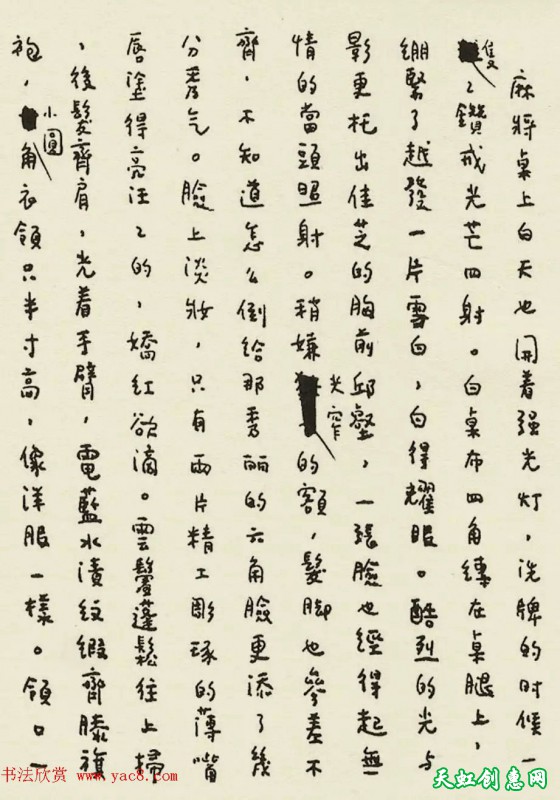 麻將桌上白天也開着强光灯，洗牌的时候一
隻〻鑽戒光芒四射。白桌布四角縛在桌腿上，
绷緊了越發一片雪白，白得耀眼。酷烈的光与
影更托出佳芝的胸前邱壑，一張臉也經得起無
情的當頭照射。稍嫌尖窄的額，髮脚也參差不
齊，不知道怎么倒給那秀丽的六角臉更添了幾
分秀气。臉上淡妝，只有兩片精工彫琢的薄嘴
唇塗得亮汪〻的，嬌红欲滴。雲鬢蓬鬆往上掃
，後髮齊肩，光着手臂，電藍水漬纹缎齊膝旗
袍，小圓角衣領只半寸高，像洋服一樣。領口一
书法欣赏 www.yac8.com
天虹创意网